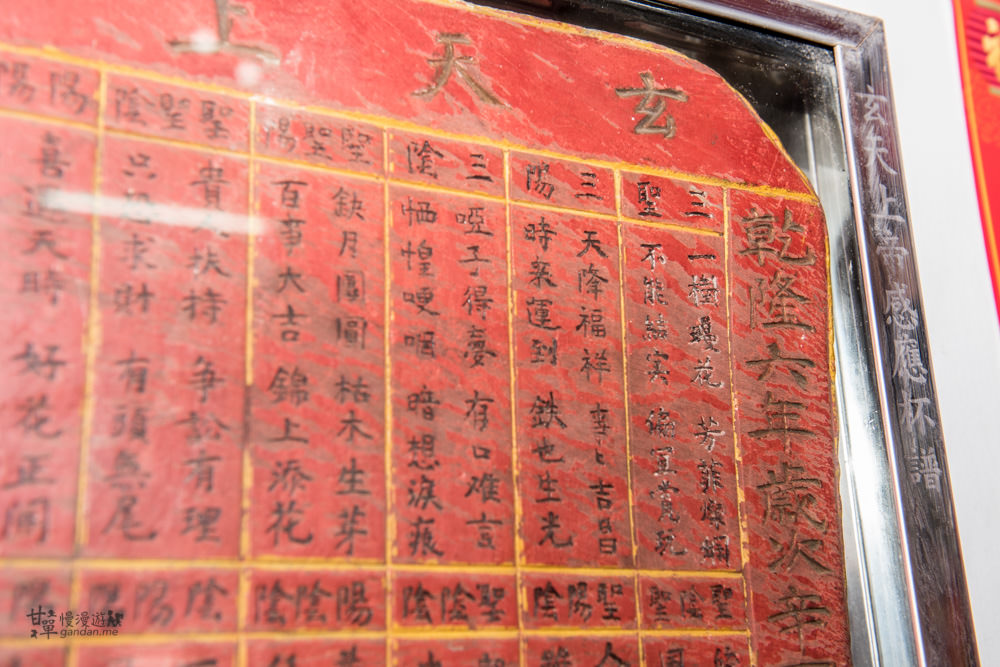 玄天上
乾隆六年歲次辛
三聖
一樹
花 芳菲燦爛
不能結實
三陽
天降福祥 幸
吉昌
時來運到 鉄也生光
三陰
啞子得夢 有口难言
恓惶哽咽 暗想淚痕
聖聖陽
缺月團圓 枯木生芽
百事大吉 錦上添花
聖聖陰
貴人扶持 争訟有理
只
求財 有頭無尾
陽陽
喜逢天時 好花正開
聖陰聖
聖陽陰
聖陰陰
陽陰陰
陰陽
陽
玄天上帝感應杯譜
甘單慢漫遊
gandan.me